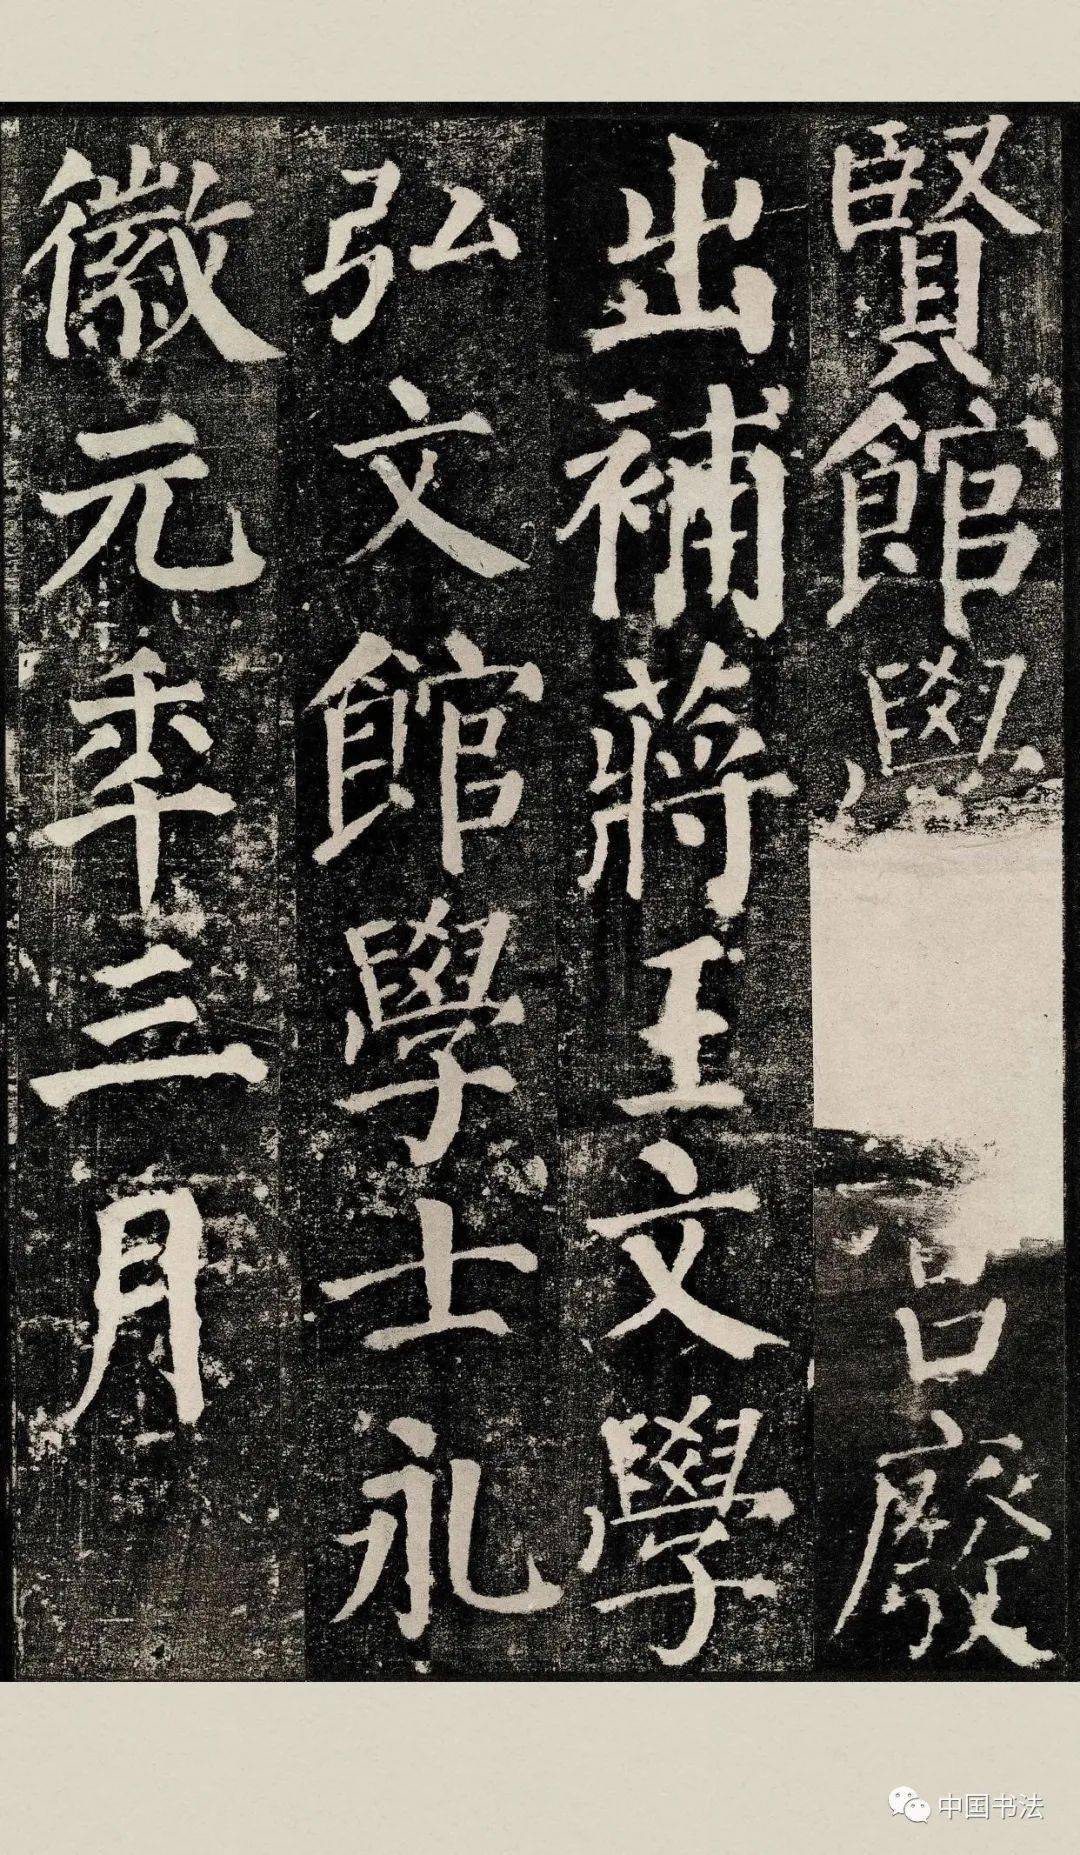 賢館學宮廢
出補蔣王文學
弘文館學士永
徽元年三月
中国书法